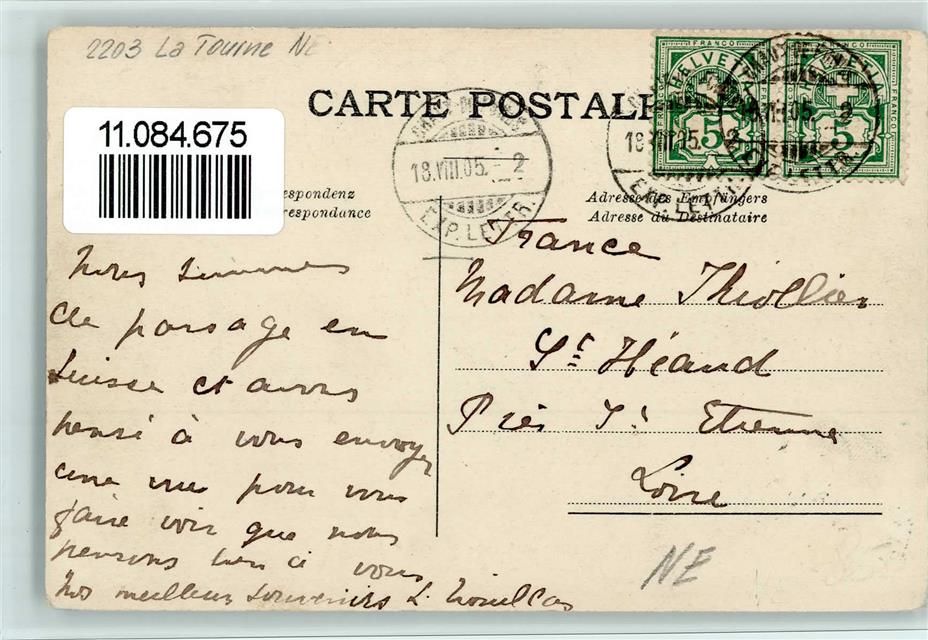 2203 La Tourne NE
CARTE POSTALE
11.084.675
FRANCO
HELVETIA
5
FRANCO
5
18.VIII.05. 2
EXP. LETTR.
18.VIII.05. 2
respondenz
respondance
Adresse des Empfängers
Adresse du Destinataire
France
Madame Thiollier
St Héand
Près St Etienne
Loire
Nous sommes
de passage en
Suisse et avons
pensé à vous envoyer
une vue pour vous
faire voir que nous
pensons bien à vous
Nos meilleurs souvenirs L.
NE